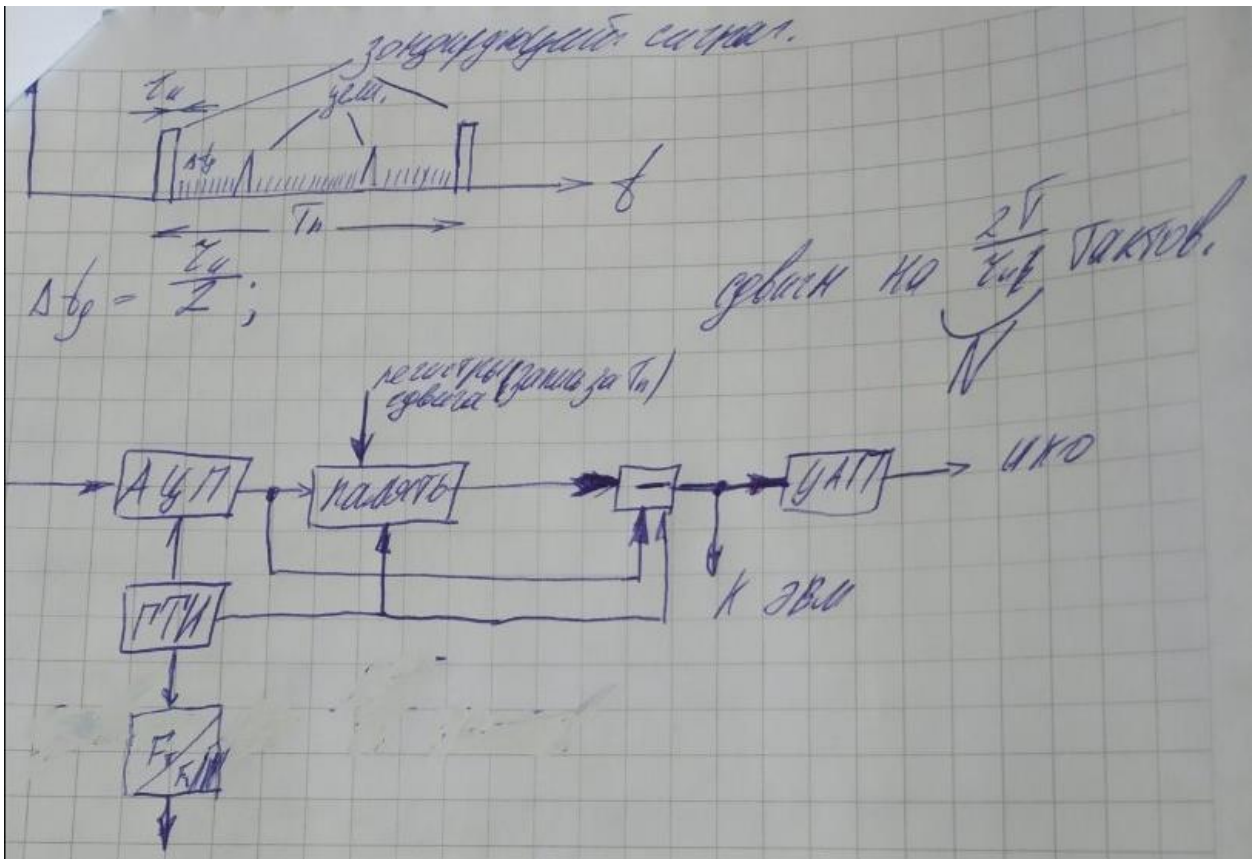 зондирующий сигнал.
τи
цели.
Δtд
t
Tп
Δtд = τи/2;
сдвиги на 2T/τи тактов.
N
регистры (запись за Tп)
сдвига
АЦП
память
—
ЦАП
ИКО
ГТИ
К ЭВМ
Fт